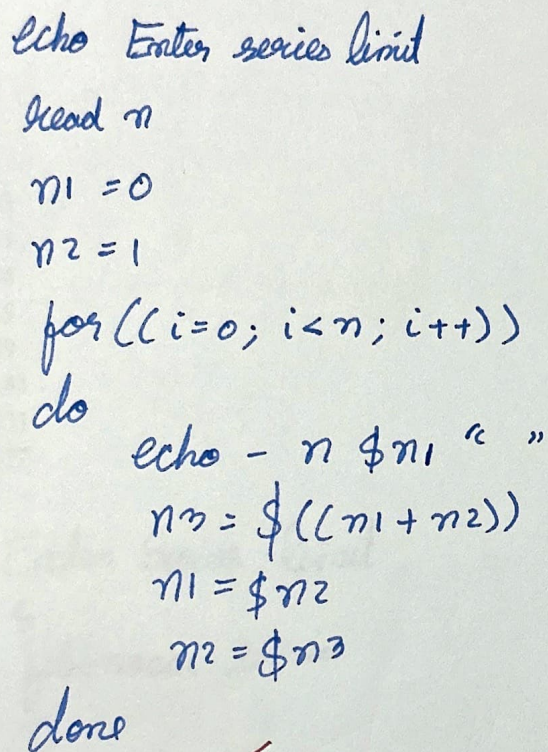 echo Enter series limit
read n
n1 =0
n2 =1
for ((i=0; i<n; i++))
do
echo - n $n1 “ ”
n3 = $((n1 + n2))
n1 = $n2
n2 = $n3
done